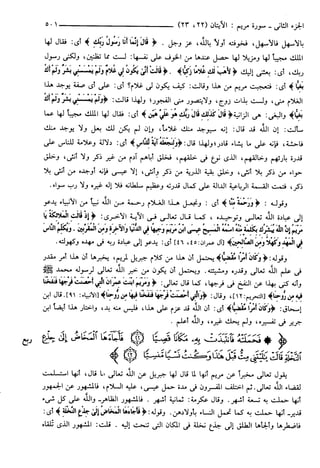 الجزء الثاني - سورة مريم : الآيتان (٢٢، ٢٣) ٥٠١
بالأسهل فالأسهل، فخوفته أولاً بالله، عز وجل. ﴿قال إنما أنا رسول ربك﴾ أي: فقال لها
الملك مجيباً لها ومزيلاً لها حصل عندها من الخوف على نفسها: لست مما تظنين، ولكني رسول
ربك، أي: بعثني إليك ﴿لأهب لك غلاما زكيا﴾. ﴿قالت أنى يكون لي غلام ولم يمسسني بشر ولم أك
بغيا﴾ أي: فتعجبت مريم من هذا وقالت: كيف يكون لي غلام؟ أي: على أي صفة يوجد هذا
الغلام مني، ولست بذات زوج، ولايتصور مني الفجور؛ ولهذا قالت: ﴿ولم يمسسني بشر ولم أك
بغيا﴾ والبغي: هي الزانية ﴿قال كذلك قال ربك هو علي هين﴾ أي: فقال لها الملك مجيباً لها عما
سألت: إن الله قد قال: إنه سيوجد منك غلاماً، وإن لم يكن لك بعل ولا يوجد منك
فاحشة، فإنه على ما يشاء قادر؛ ولهذا قال: ﴿ولنجعله آية للناس﴾ أي: دلالة وعلامة للناس على
قدرة بارئهم وخالقهم، الذي نوع في خلقهم، فخلق أباهم آدم من غير ذكر ولا أنثى، وخلق
حواء من ذكر بلا أنثى، وخلق بقية الذرية من ذكر وأنثى، إلا عيسى فإنه أوجده من أنثى بلا
ذكر، فتمت القسمة الرباعية الدالة على كمال قدرته وعظيم سلطانه فلا إله غيره ولا رب سواه.
وقوله: ﴿ورحمة منا﴾ أي: ونجعل هذا الغلام رحمة من الله نبياً من الأنبياء يدعو
إلى عبادة الله تعالى وتوحيده، كما قال تعالى في الآية الأخرى: ﴿إذ قالت الملائكة يا
مريم إن الله يبشرك بكلمة منه اسمه المسيح عيسى ابن مريم وجيها في الدنيا والآخرة ومن المقربين. ويكلم الناس
في المهد وكهلا ومن الصالحين﴾ (آل عمران: ٤٥، ٤٦) أي: يدعو إلى عبادة ربه في مهده وكهولته.
وقوله: ﴿وكان أمرا مقضيا﴾ يحتمل أن هذا من كلام جبريل لمريم، يخبرها أن هذا أمر مقدر
في علم الله تعالى وقدره ومشيئته. ويحتمل أن يكون من خبر الله تعالى لرسوله محمد ﷺ
وأنه كنى بهذا عن النفخ في فرجها، كما قال تعالى: ﴿ومريم ابنت عمران التي أحصنت فرجها فنفخنا
فيه من روحنا﴾ (التحريم: ١٢)، وقال: ﴿والتي أحصنت فرجها فنفخنا فيها من روحنا﴾ (الأنبياء: ٩١). قال ابن
إسحاق: ﴿وكان أمرا مقضيا﴾ أي: أن الله قد عزم على هذا، فليس منه بد، واختار هذا أيضاً ابن
جرير في تفسيره، ولم يحك غيره، والله أعلم.
﴿فحملته فانتبذت به مكانا قصيا فأجاءها المخاض إلى جذع
النخلة قالت يا ليتني مت قبل هذا وكنت نسيا منسيا﴾
ربع
يقول تعالى مخبراً عن مريم أنها لما قال لها جبريل عن الله تعالى ما قال، أنها استسلمت
لقضاء الله تعالى. ثم اختلف المفسرون في مدة حمل عيسى، عليه السلام، فالمشهور عن الجمهور
أنها حملت به تسعة أشهر. وقال عكرمة: ثمانية أشهر. فالمشهور الظاهر- والله على كل شيء
قدير- أنها حملت به كما تحمل النساء بأولادهن. وقوله: ﴿فأجاءها المخاض إلى جذع النخلة﴾ أي:
فاضطرها وألجأها الطلق إلى جذع نخلة في المكان التي تنحت إليه. قلت: المشهور الذي تلقاه